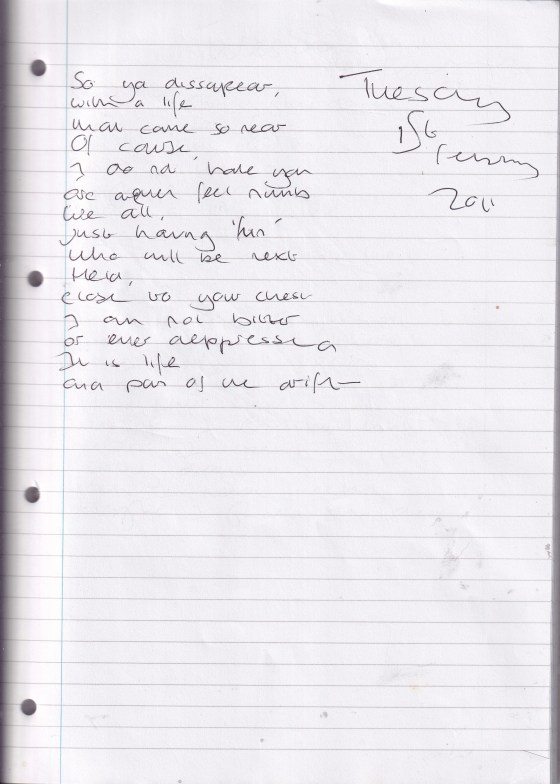 So ya dissapear,
with a life
that came so near
Of course,
I do not 'hate you
are again feel numb
We all,
just having 'fun'
who will be next
Held,
close to your chest
I am not bitter
or ever deppressed
It is life
and part of the drift
Tuesday
1st
February
2011